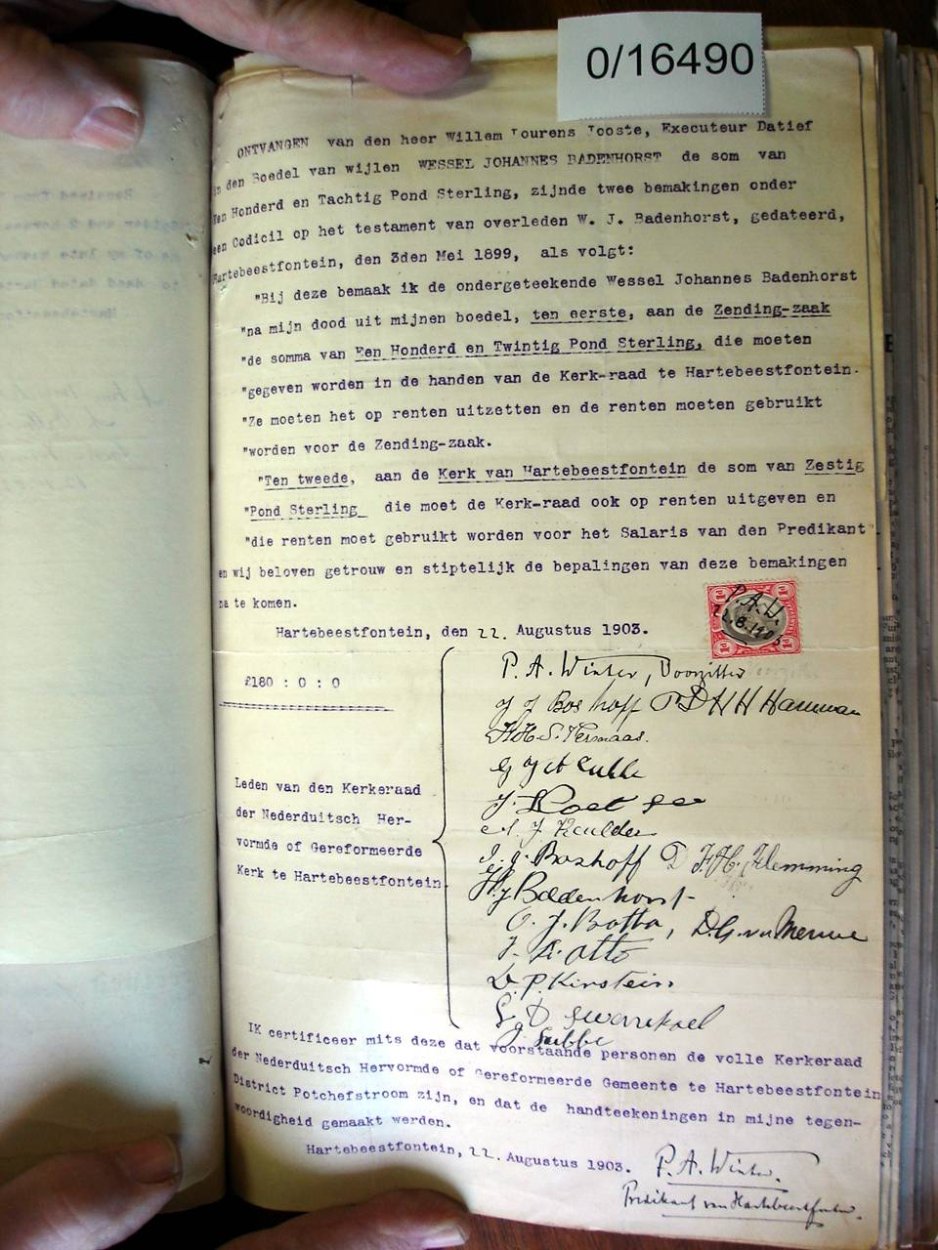 0/16490
ONTVANGEN van den heer Willem Lourens Jooste, Executeur Datief
in den Boedel van wijlen WESSEL JOHANNES BADENHORST de som van
Een Honderd en Tachtig Pond Sterling, zijnde twee bemakingen onder
een Codicil op het testament van overleden W. J. Badenhorst, gedateerd,
Hartebeestfontein, den 3den Mei 1899, als volgt:
"Bij deze bemaak ik de ondergeteekende Wessel Johannes Badenhorst
"na mijn dood uit mijnen boedel, ten eerste, aan de Zending-zaak
"de somma van Een Honderd en Twintig Pond Sterling, die moeten
"gegeven worden in de handen van de Kerk-raad te Hartebeestfontein.
"Ze moeten het op renten uitzetten en de renten moeten gebruikt
"worden voor de Zending-zaak.
"Ten tweede, aan de Kerk van Hartebeestfontein de som van Zestig
"Pond Sterling die moet de Kerk-raad ook op renten uitgeven en
"die renten moet gebruikt worden voor het Salaris van den Predikant"
en wij beloven getrouw en stiptelijk de bepalingen van deze bemakingen
na te komen.
P.A.W.
22.8.1903
Hartebeestfontein, den 22. Augustus 1903.
P. A. Winter, Voorzitter
£180 : 0 : 0
J J Boshoff P D H H Hamman
H H S. Vermaas.
Leden van den Kerkeraad
der Nederduitsch Her-
vormde of Gereformeerde
Kerk te Hartebeestfontein
J. Coetzee
J. J. Boshoff D F H. Flemming
H J Badenhorst
C. J. Botha, D.G. v.d Merwe
J. A. Otto
D. P. Kirstein
G. D Swanepoel
J. Lubbe
IK certificeer mits deze dat voorstaande personen de volle Kerkeraad
der Nederduitsch Hervormde of Gereformeerde Gemeente te Hartebeestfontein
District Potchefstroom zijn, en dat de handteekeningen in mijne tegen-
woordigheid gemaakt werden.
Hartebeestfontein, 22. Augustus 1903.
P. A. Winter.
Predikant van Hartebeestfontein.